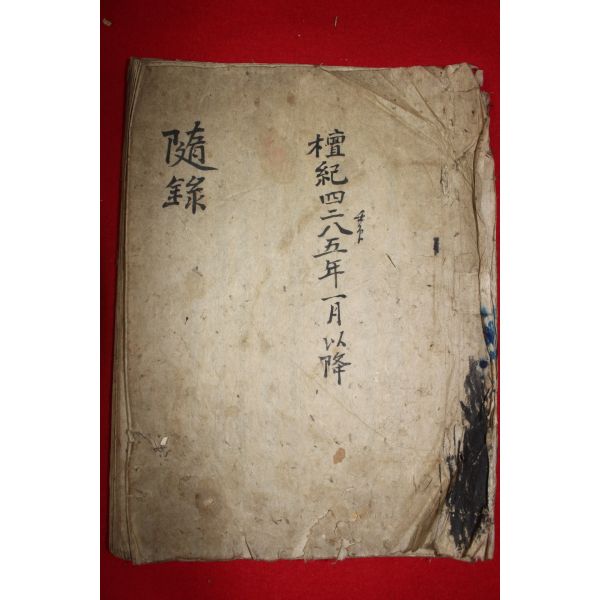 檀紀四二八五年一月以降
壬辰
隨錄